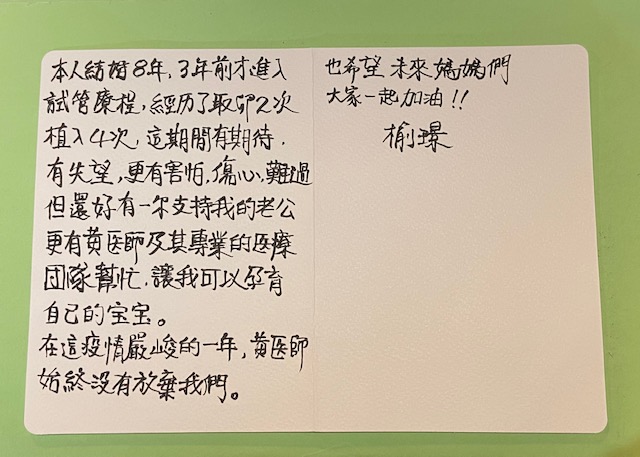 本人結婚8年，3年前才進入
試管療程，經历了取卵2次
植入4次，這期間有期待，
有失望，更有害怕，傷心，難過
但還好有一个支持我的老公
更有黃医師及其專業的医療
团隊幫忙，讓我可以孕育
自己的宝宝。
在這疫情嚴峻的一年，黃医師
始終沒有放棄我們。
也希望未來媽媽們
大家一起加油!!